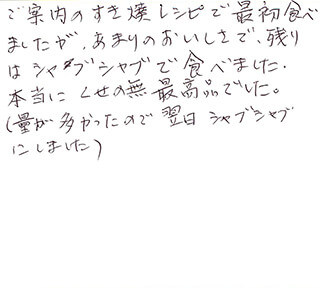 ご案内のすき焼レシピで最初食べ
ましたが、あまりのおいしさで、残り
はシャブシャブで食べました.
本当にくせの無最高品でした。
(量が多かったので翌日シャブシャブ
にしました)